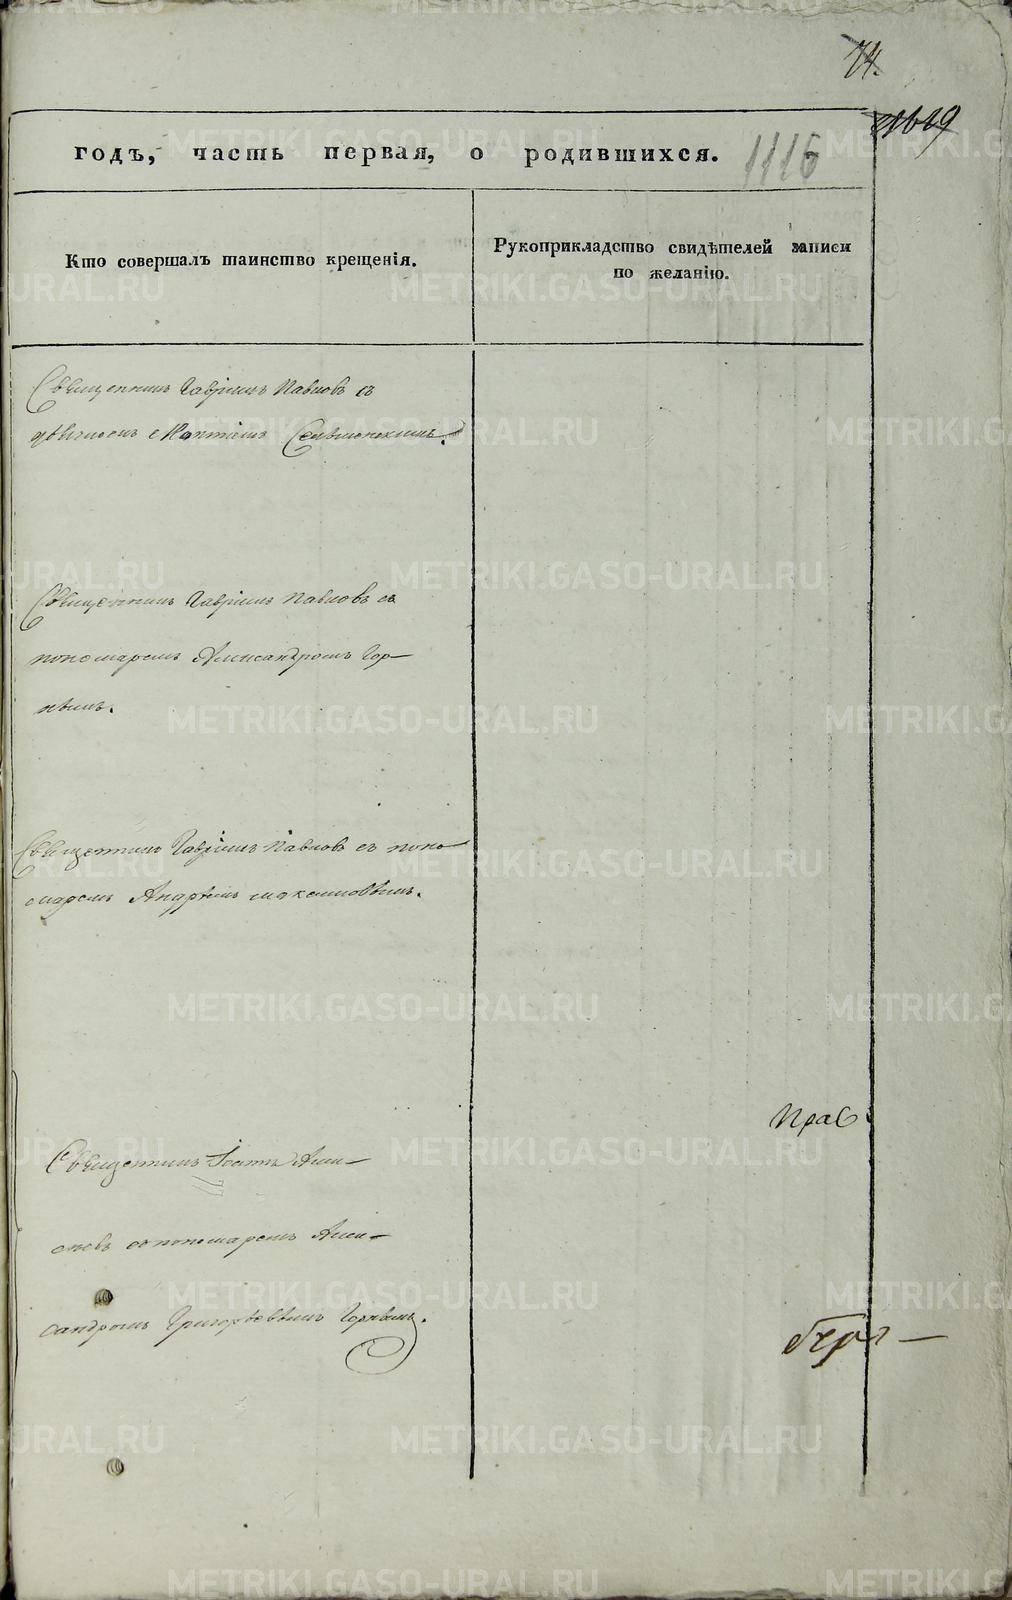 74.
1619
годъ, часть первая, о родившихся.
1116
Кто совершалъ таинство крещенія.
Рукоприкладство свидѣтелей записи
по желанію.
Священникъ Гавріилъ Павловъ съ
Священникъ Гавріилъ Павловъ съ
пономаремъ Александромъ Гор-
нымъ.
Священникъ Гавріилъ Павловъ съ поно
маремъ Андреемъ Максимовымъ.
Священникъ Іоаннъ
съ пономаремъ Алек-
сандромъ Григорьевымъ Горнымъ.
METRIKI.GASO-URAL.RU